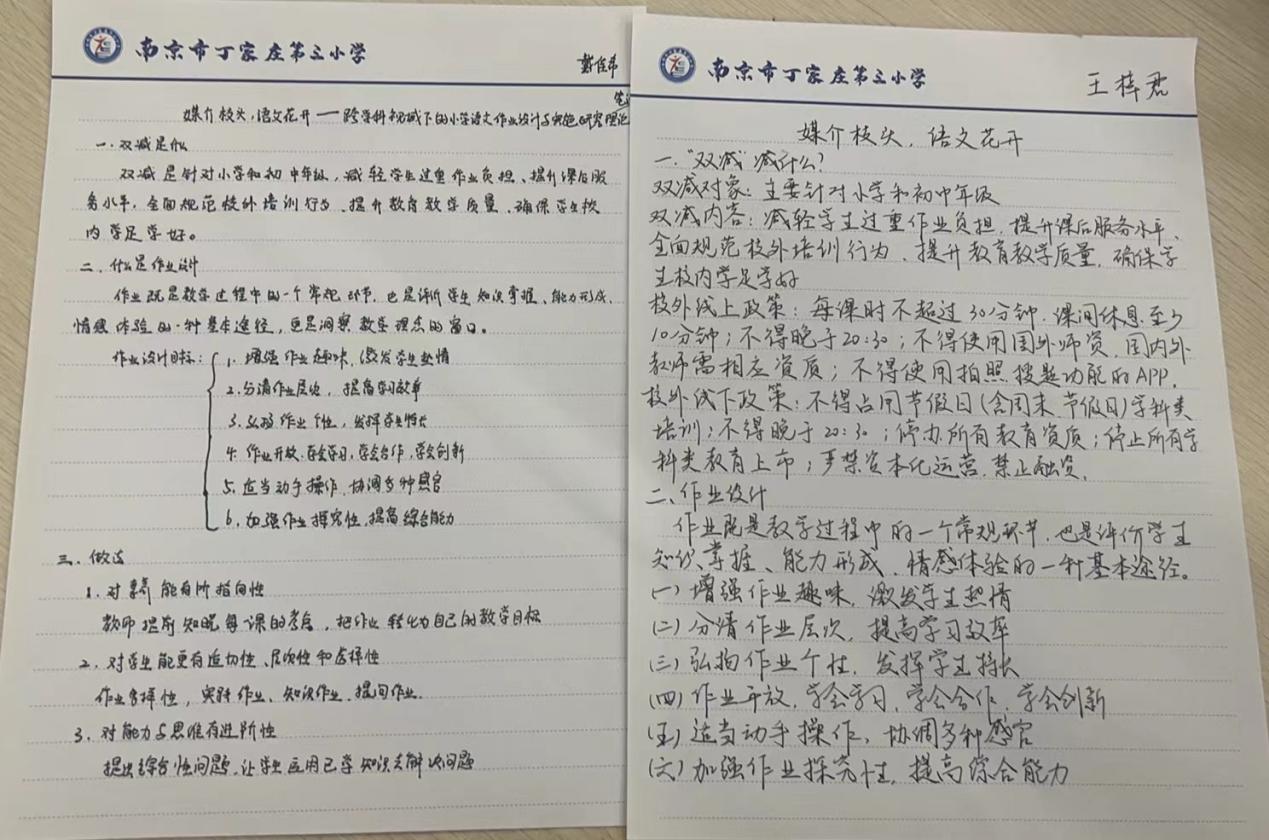 南京市丁家庄第三小学
戴佳
媒介枝头,语文花开——跨学科视域下的小学语文作业设计与实施研究理论
一.双减是什么
双减是针对小学和初中年级,减轻学生过重作业负担、提升课后服
务水平,全面规范校外培训行为、提升教育教学质量、确保学生校
内学足学好。
二、什么是作业设计
作业既是教学过程中的一个常规环节,也是评价学生知识掌握、能力形成、
情感体验的一种基本途径,更是洞察教学理念的窗口。
作业设计目标:
1.增强作业趣味,激发学生热情
2.分清作业层次,提高学习效率
3.弘扬作业个性,发挥学生特长
4.作业开放,学会学习,学会合作,学会创新
5.适当动手操作,协调多种感官
6.加强作业探究性,提高综合能力
三.做法
1.对素养能有所指向性
教师提前知晓每课的考点,把作业转化为自己的教学目标
2.对学生能更有适切性、层次性和选择性
作业选择性,实践作业、知识作业、提问作业.
3.对能力与思维有进阶性
提出综合性问题,让学生应用已学知识去解决问题
南京市丁家庄第三小学
王梓君
媒介枝头,语文花开
一."双减"减什么?
双减对象:主要针对小学和初中年级
双减内容:减轻学生过重作业负担,提升课后服务水平、
全面规范校外培训行为、提升教育教学质量,确保学
生校内学足学好
校外线上政策:每课时不超过30分钟.课间休息至少
10分钟;不得晚于20:30;不得使用国外师资,国内外
教师需相应资质;不得使用拍照搜题功能的APP.
校外线下政策:不得占用节假日(含周末、节假日)学科类
培训;不得晚于20:30;停办所有教育资质;停止所有学
科类教育上市;严禁资本化运营,禁止融资.
二、作业设计
作业既是教学过程中的一个常观环节,也是评价学生
知识掌握、能力形成、情感体验的一种基本途径。
(一)增强作业趣味,激发学生热情
(二)分清作业层次,提高学习效率
(三)弘扬作业个性,发挥学生特长
(四)作业开放,学会学习,学会合作,学会创新
(五)适当动手操作,协调多种感官
(六)加强作业探究性,提高综合能力